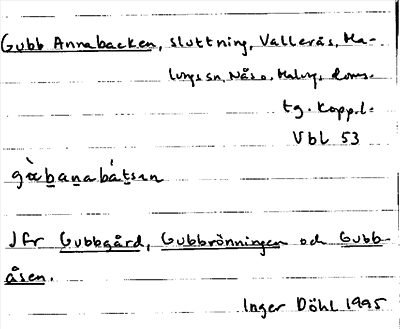 Gubb Annabacken, sluttning, Vallerås, Ma-
lungs sn, Nås o. Malung, doms.
tg. Kopp.l.
Vbl 53
Jfr Gubbgård, Gubbrönningen och Gubb-
åsen.
Inger Döhl 1995